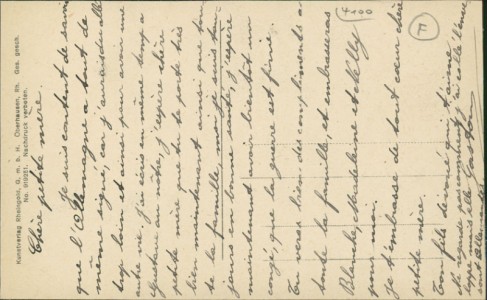 Kunstverlag Rheingold, G. m. b. H. Oberhausen, Rh. Ges. gesch.
No. Nachdruck verboten.
Chère petite mère.
Je suis content de savoir
que l'Allemagne a tout de
même signé, car j'aurais du aller
trop loin et ainsi pour avoir une
autre vie. J'écris en même temps a
Gustave au nôtre, j'espère chère
petite mère que tu te porte très
bien maintenant ainsi que tou
de la famille, moi je suis tou
jours en bonne santé, j'espère
maintenant avoir bientôt un
congé, que la guerre est finie.
Tu veras bien des compliments a
toute la famille, et embrasseras
Blanche, Madeleine et Nelly
pour moi.
Je t'embrasse de tout cœur chère
petite mère.
Ton fils dévoué qui t'aime
Gaston
ne regarde pas comment j'ai collé l'émé
mais elle
sont Allemandes
4100